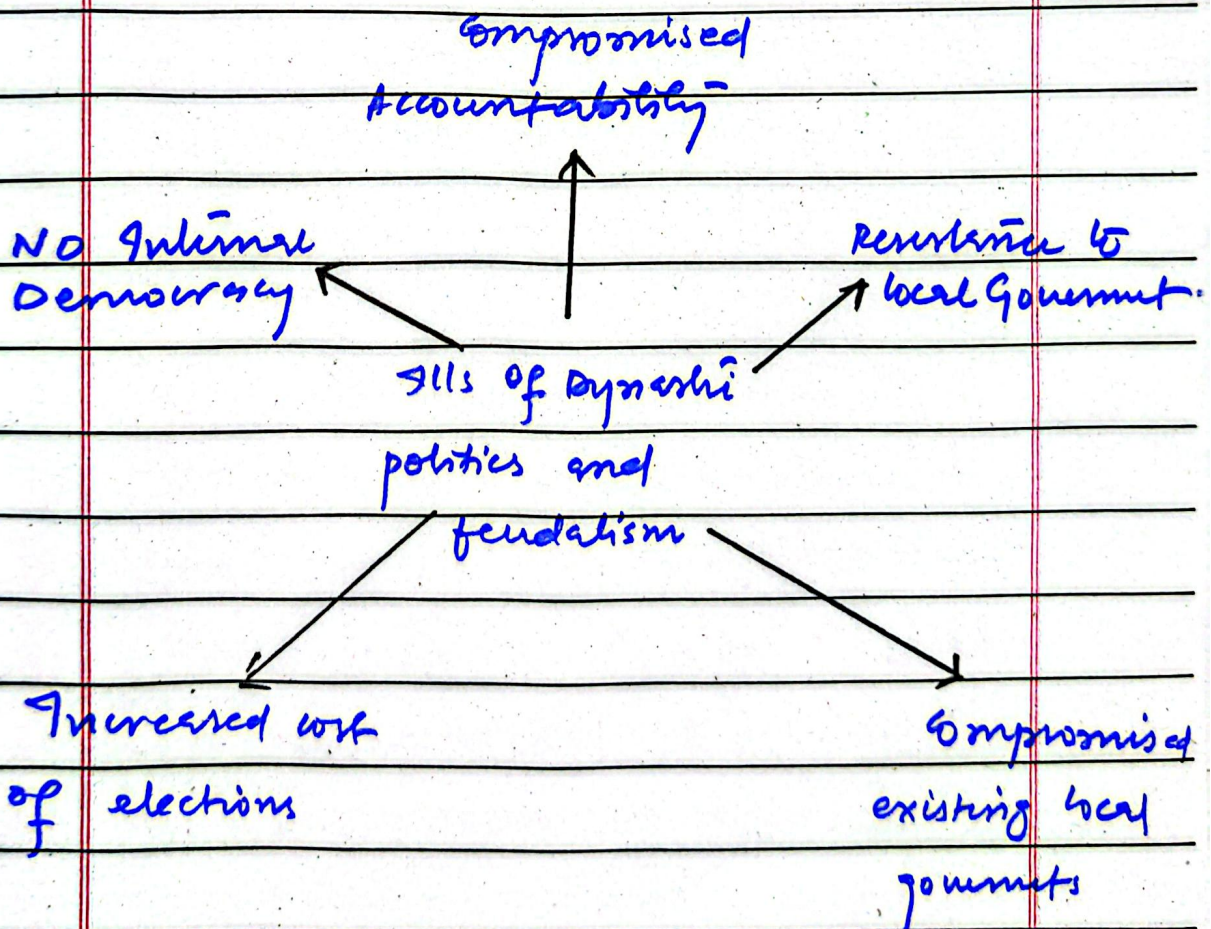 Compromised
Accountability
No Internal
Democracy
Resistance to
local Government.
Ills of Dynasti
politics and
feudalism
Increased cost
of elections
Compromised
existing local
governments